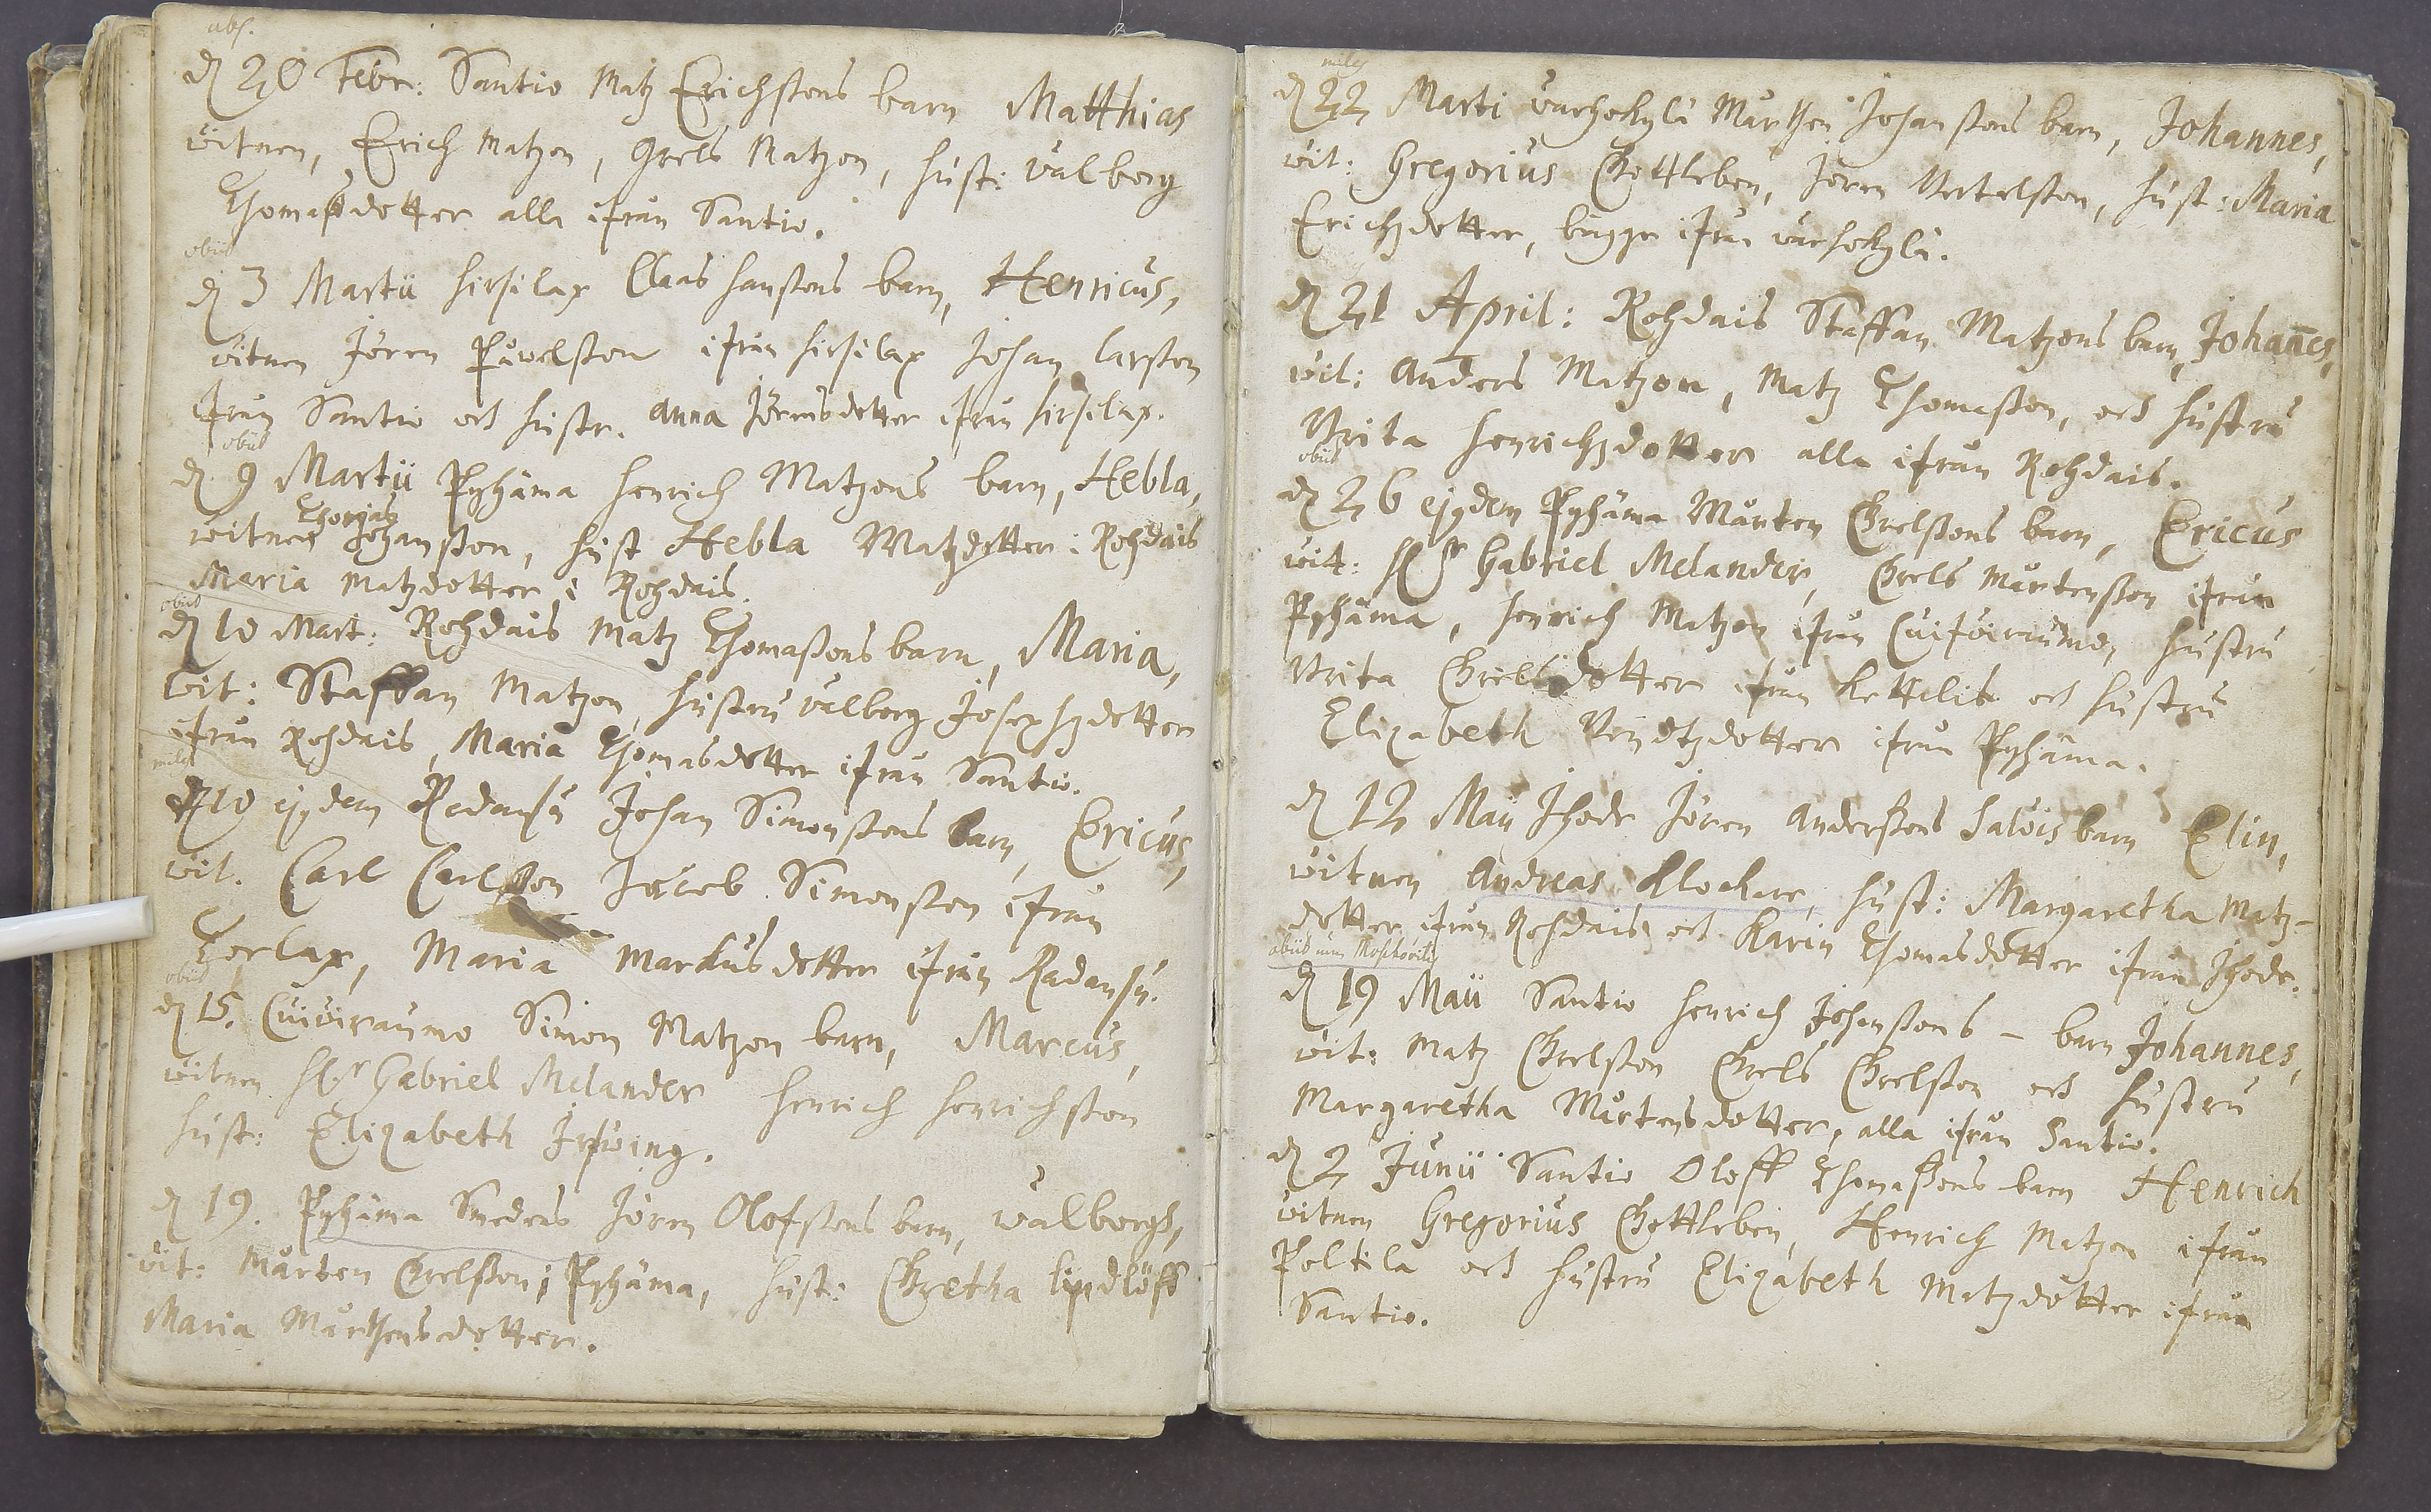 abs.
d 20 Febr: Santio Matz Erichssons barn Matthias
witnen, Erich Matzon, Grels Matzon, hust: Walborg
Thomasdotter alla ifrån Santio.
obiit
d 3 Martii hirsilax Claas hanssons barn, Henricus,
witnen Jören Påwelsson ifrån hirsilax Johan Larsson
ifrån Santio och hustr. Anna Jörensdotter ifrån hirsilax.
obiit
d. 9 Martii Pyhäma henrich Matzons barn, Hebla,
Thomas
witnen Johansson, hust Hebla Matzdotter i Rohdais
Maria Matzdotter i Rohdais.
obiit
d 10 Mart: Rohdais Matz Thomassons barn, Maria,
wit: Staffan Matzon, hustru walborg Josephzdotter
ifrån Rohdais, Maria Thomasdotter ifrån Santio.
miles
d 10 ejzdem Radansu Johan Simonssons barn, Ericus,
wit. Carl Carlsson Jacob Simonsson ifrån
Torlax, Maria Markusdotter ifrån Radansu.
obiit
d 15. Cuiwiraumo Simon Matzon barn, Marcus,
witnen H:r Gabriel Melander henrich henrichsson
hust: Elizabeth Irfwing.
d 19. Pyhäma Smedens Jören Olofssons barn, walborgh,
wit: Mårten Grelsson i Pyhäma, hust: Gretha lindlöff
Maria Mårthensdotter.
miles
d 22 Marti warhokylä Mårthen Johanssons barn, Johannes,
wit: Gregorius Gottleben, Jören Bertelsson, hust: Maria
Erichzdotter, bägge ifrån warhokylä.
d 21 April: Rohdais Staffan Matzons barn, Johan̅es,
wit: Anders Matzon, Matz Thomasson, och hustru
Brita henrichzdotter alla ifrån Rohdais.
obiit
d 26 ejzdem Pyhäma Mårten Grelssons barn, Ericus
wit: H:r Gabriel Melander, Grels Mårtensson ifrån
Pyhäma, henrich Matzon ifrån Cuifwiraumo, hustru
Brita Grelsdotter ifrån Kettelis och hustru
Elizabeth Bendtzdotter ifrån Pyhäma.
d 12 Maii Ihode Jören Anderssons Salvis barn Elin,
witnen Andreas Klockare, hust: Margaretha Matz-
dotter ifrån Rohdais och Karin Thomasdotter ifrån Ihode.
obiit
d 19 Maii Santio henrich Johanssons - barn Johannes,
wit: Matz Grelsson Grels Grelsson och hustru
Margaretha Mårtensdotter, alla ifrån Santio.
d 2 Junii Santio Oloff Thomassons barn Henrich
witnen Gregorius Gottleben, Henrich Matzon ifrån
Poltila och hustru Elizabeth Matzdotter ifrån
Santio.